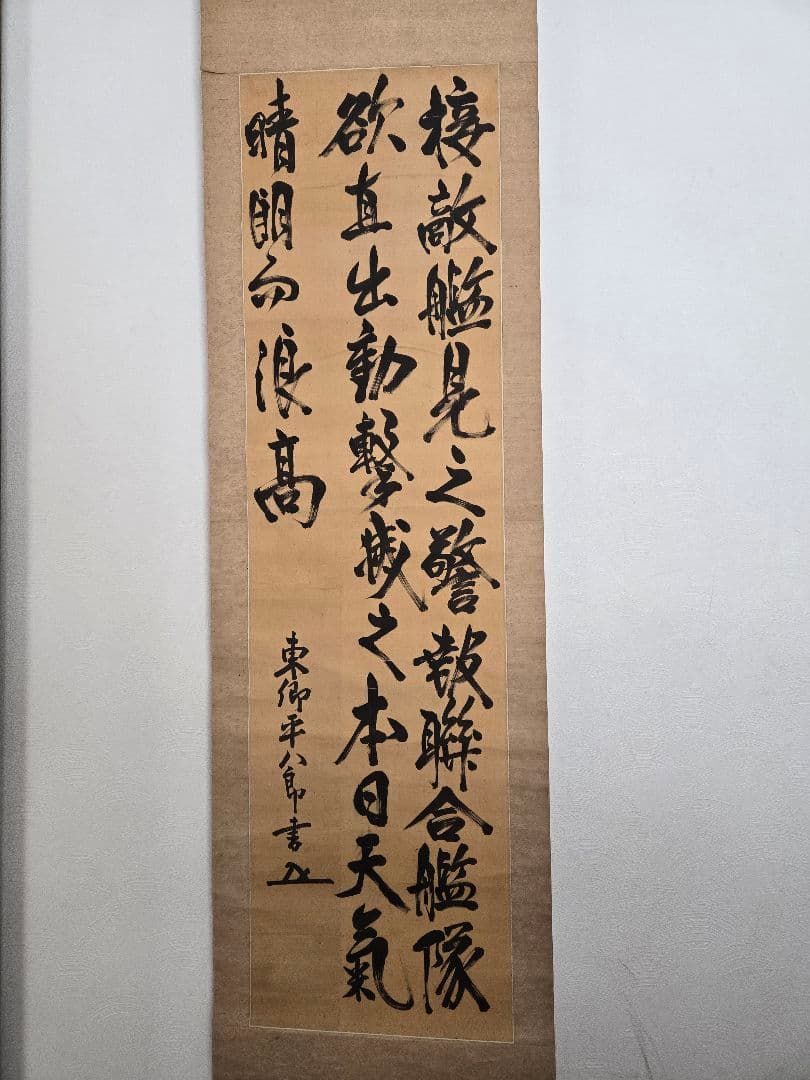 接敵艦見之警報聯合艦隊
欲直出動撃滅之本日天氣
晴朗而浪高
東郷平八郎書